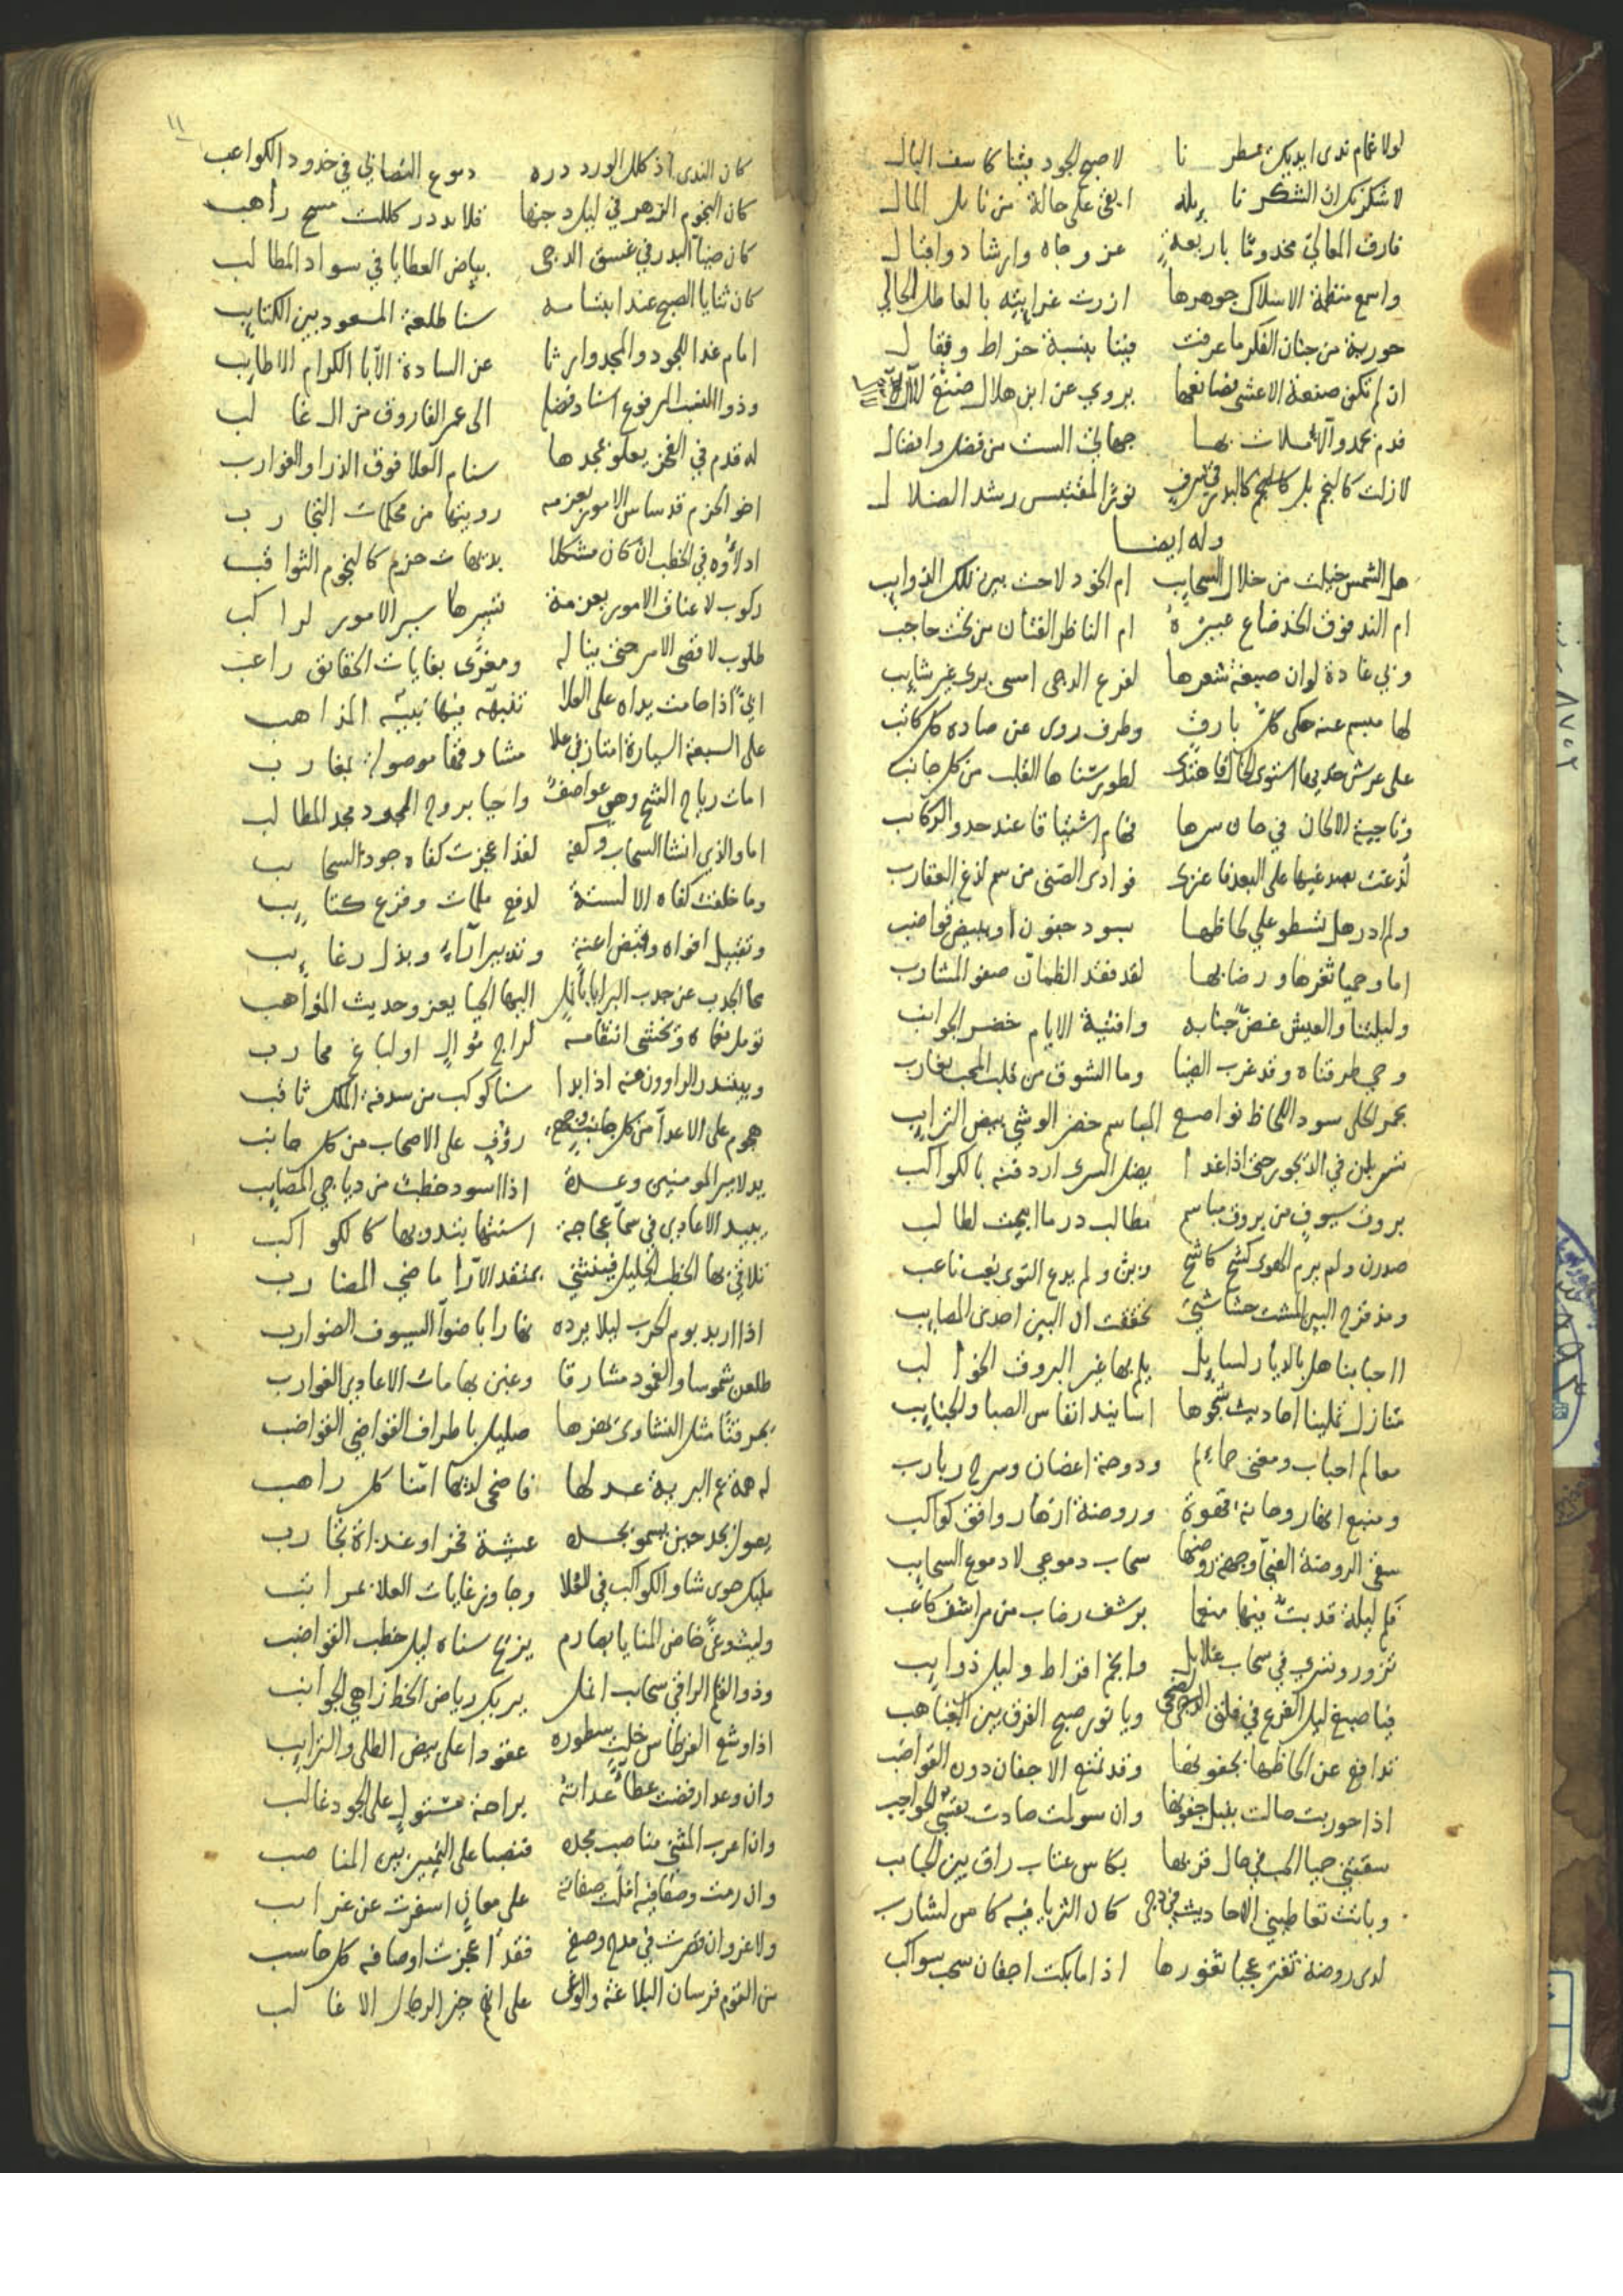 لولا غمام ندى ايديك تمطر نا لاصبح الجود فينا كاسف البال
لاشكرنك ان الشكر نا ئله ابقى على حالة من نائل المال
فارق المعالي مخدوما باربعة عز وجاه وارشاد واقبال
واسمع منظمة الاسلاك جوهرها ازرت غرائبه بالعاطل الحالي
حورية من جنان الفكر ما عرفت فينا بنسبة خراط وقفال
ان لم تكن صنعة الاعشى بضائعها يروي عن ابن هلال
فدم بحمد و بها جهاتك الست من فضل وافضال
لازلت كالنجم بل كالبدر في شرف نورا لمقتبس رشد الضلال
وله ايضا
هل الشمس خيلت من خلال السحايب ام الخود لاحت بين تلك الذوايب
ام الند فوق الخد ضاع عبيره ام الناظر الفتان من تحت حاجب
وبي غادة لو ان صبغة شعرها لفرع الدجى امسى يرى غير شايب
لها مبسم عنه حكى كل بارق وطرف روى عن صاده كل كاتب
على عرش خديها استوى الخال فاهتدى لطور سناها القلب من كل جانب
وناجيته الالحان في حان سرها فهام اشتياقا عند حدو الركائب
لذعت بصدغيها على البعد فاعترى فوادى الضنى من سم لذغ العقارب
ولم ادر هل تسطو علي لحاظها بسود جفون او ببيض قواضب
اما وحميا ثغرها ورضابها لقد فقد الظمآن صفو المشارب
وليلتنا والعيش غض جنابه وافنية الايام خضر الجوانب
وحي طرقناه وقد غرب الضيا وما الشوق من قلب المحب بغارب
بحمر الحلى سود اللحاظ نواصع المباسم خضر الوشي بيض الترايب
تسربلن في الديجور حتى اذا غدا يضل السرى اردفنه بالكواكب
بروق سيوف من بروق مباسم مطالب در ما ابيحت لطالب
صددن ولم يرم الهوى كشح كاشح وبن ولم يدع النوى نعب ناعب
ومذ قرح البين المشت حشاشتي تحققت ان البين احدى المصايب
ااحبابنا هل بالديار لسايل يلم بها غير البروق الخوالب
منازل تملينا احاديث شجوها اسانيد انفاس الصبا والجنايب
معالم احباب ومغنى حمائم ودوحة اغصان وسرح ربارب
ومنبع انهار وحانة قهوة وروضة ازهار وافق كواكب
سقى الروضة الغنا وبهجة روضها سحاب دموعي لا دموع السحايب
فكم ليلة قد بت فيها منعما برشف رضاب من مراشف كاعب
تزور وتسري في سحاب غلايل وانجم اقراط وليل ذوايب
فيا صبغ ليل الفرع في فلق الضحى ويا نور صبح الفرق بين الغياهب
تدافع عن الحاظها بجفونها وقد تمنع الاجفان دون القواضب
اذا حوربت صالت بنبل جفونها وان سولت صادت بقسي الحواجب
سقتني حميا الحب في حال قربها بكاس عتاب راق بين الحبايب
وباتت تعاطيني الاحاديث في دجى كان الثريا فيه كاس لشارب
لدى روضة تفتر عجبا ثغورها اذا ما بكت اجفان سحب سواكب
١١
كان الندى اذ كلل الورد دره دموع التصابي في خدود الكواعب
كان النجوم الزهر في ليل دجنها قلايد در كللت مسح راهب
كان ضيا البدر في غسق الدجى بياض العطايا في سواد المطالب
كان ثنايا الصبح عند ابتسامه سنا طلعة المسعود بين الكتايب
امام غدا للجود والمجد وارثا عن السادة الآبا الكرام الاطايب
وذو النسب المرفوع اسنا دفضله الى عمر الفاروق من ال غالب
له قدم في الفخر يعلو بمجدها سنام العلا فوق الذرا والغوارب
اخو الحزم قد ساس الامور بعزمه رويتها من محكمات التجارب
اراؤه في الخطب ان كان مشكلا بديهات حزم كالنجوم الثواقب
ركوب لاعناق الامور بعزمة تسيرها سير الامور لراكب
طلوب لاقصى الامر حتى يناله ومغرى بغايات الحقايق راغب
ابي اذا حامت يداه على العلا تنبه فيها بيته المذاهب
على السبعة السيارة امتاز في علا مشارقها موصولة بمغارب
امات رياح الشح وهي عواصف واحيا بروح الجود مجد المطالب
اما والذي انشا السحاب وكفه لقد اعجزت كفاه جود السحايب
وما خلقت كفاه الا لستة لدفع ملمات وقرع كتايب
وتقبيل افواه وقبض اعنة وتدبير آراء وبذل رغايب
محا الجدب عن جدب البرايا بانمل اليها الحيا يعزو حديث المواهب
نومل نعماه ونخشى انتقامه لراج موال او لباغ محارب
ويبتدر الراوون منه اذا بدا سنا كوكب من سدفة الملك ثاقب
هجوم على الاعدا من كل جانب رؤف على الاصحاب من كل جانب
يد لامير المومنين وعدة اذا اسود خطب من دياجي المصايب
يبيد الاعادي في سما عجاجة اسنتها تبدو بها كالكواكب
تلاقي بها الخطب الجليل فينثني بمنقد الآرا ماضي المضارب
اذا اربد يوم الحرب ليلا يرده نهارا باضوا السيوف الضوارب
طلعن شموسا والغمود مشارقا وغبن بهامات الاعادي الغوارب
بحر قنا مثل النشاوى يهزها صليل باطراف القواضي القواضب
له همة عم البرية عدلها فاضحى لديها امنا كل راهب
يصول بجد حين يسمو بجده عشية فخر او غداة تحارب
مليك حوى شاو الكواكب في العلا وجاوز غايات العلا غرايب
وليث وغى خاض المنايا بصارم يزيح سناه ليل خطب القواضب
وذو القلم الراقي سحايب انمل يريك رياض الخط زاهي الجوانب
اذا وشع القرطاس خلت سطوره عقودا على بيض الطلى والترايب
وان وعدا رفضت عطاء عداته براحة مستول على الجود غالب
وان اعرب المثني مناصب مجده فنصبا على التمييز بين المناصب
وان رمت وصفا فيه املت صفاته علي معان اسفرت عن غرايب
ولا غرو ان قصرت في مدح وصفه فقد اعجزت اوصافه كل حاسب
من القوم فرسان البلاغة والوغى على انهم خير الرجال الاغالب